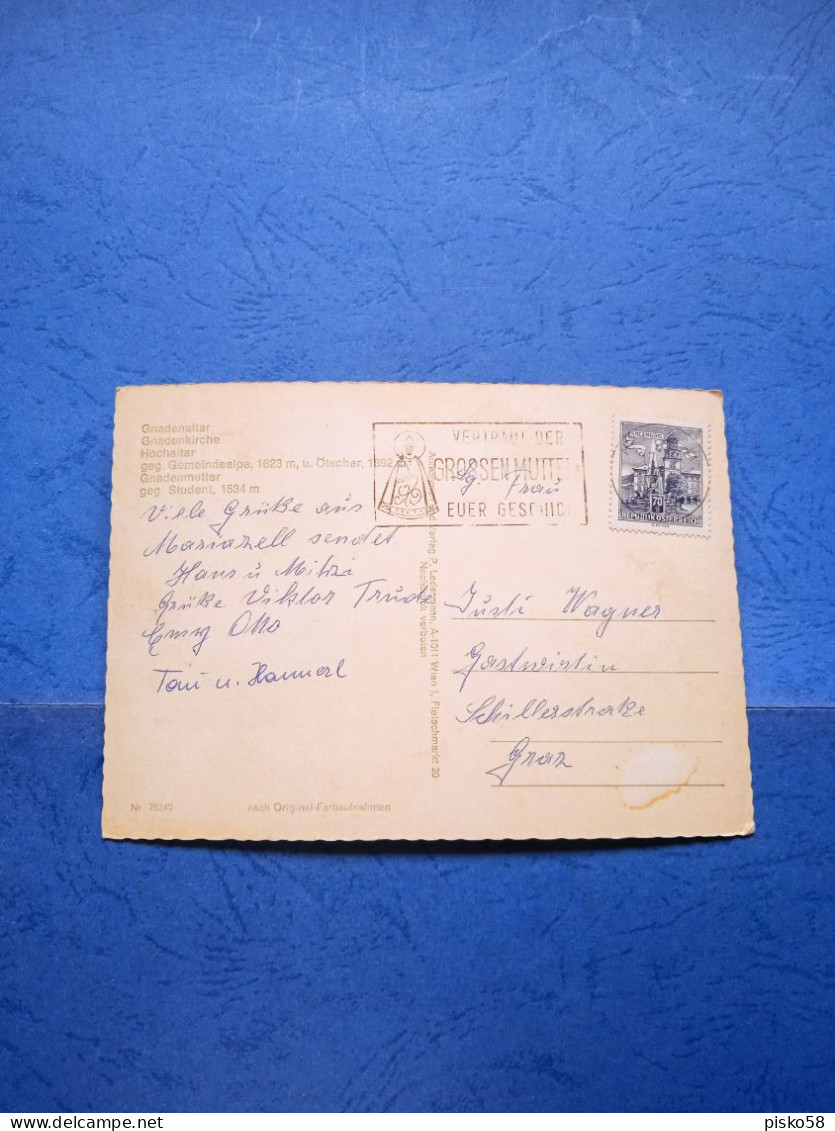 Gnadenaltar
Gnadenkirche
Hochaltar
geg. Gemeindealpe, 1623 m, u. Ötscher, 1892 m
Gnadenmutter
geg. Student, 1534 m
Viele Grüße aus
Mariazell sendet
Hans u Mitzi
Grüße Viktor Trude
Emy Otto
u. Hannerl
Nr. 78240
nach Original-Farbaufnahmen
Verlag P. Ledermann, A-1011 Wien I, Fleischmarkt 20
Nachdruck verboten
VERTRAUT DER
GROSSEN MUTTER
EUER GESCHICK
SALZBURG
70
REPUBLIK ÖSTERREICH
Sg. Frau
Justi Wagner
Gastwirtin
Schillerstraße
Graz
pisko58